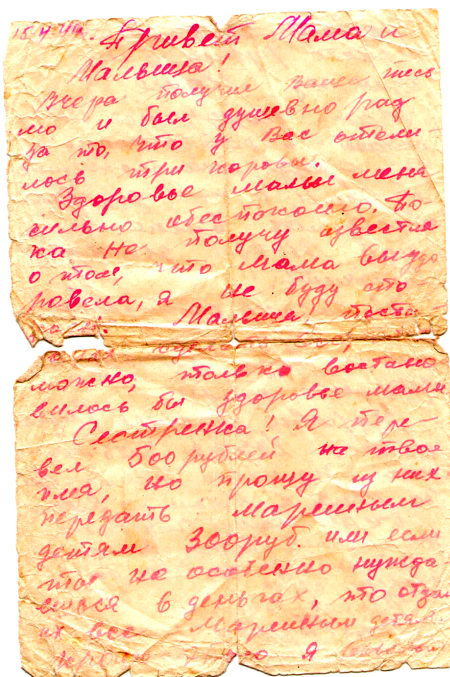 15.4.44. Привет Мама и
Малыша!
Вчера получил Ваше пись
мо и был душевно рад
за то, что у Вас отели-
лось три коровы.
Здоровье мамы меня
сильно обеспокоило. По-
ка не получу известия
о том, что мама выздо
ровела, я не буду спо
Малыша! Поста
можно, только востано
вилось бы здоровье мамы
Сестренка! Я пере-
вел 500 рублей на твое
имя, но прошу из них
передать Марешным
детям 300 руб. или если
ты не особенно нужда
ешься в деньгах, то отдай
их все Марешным детям.
я